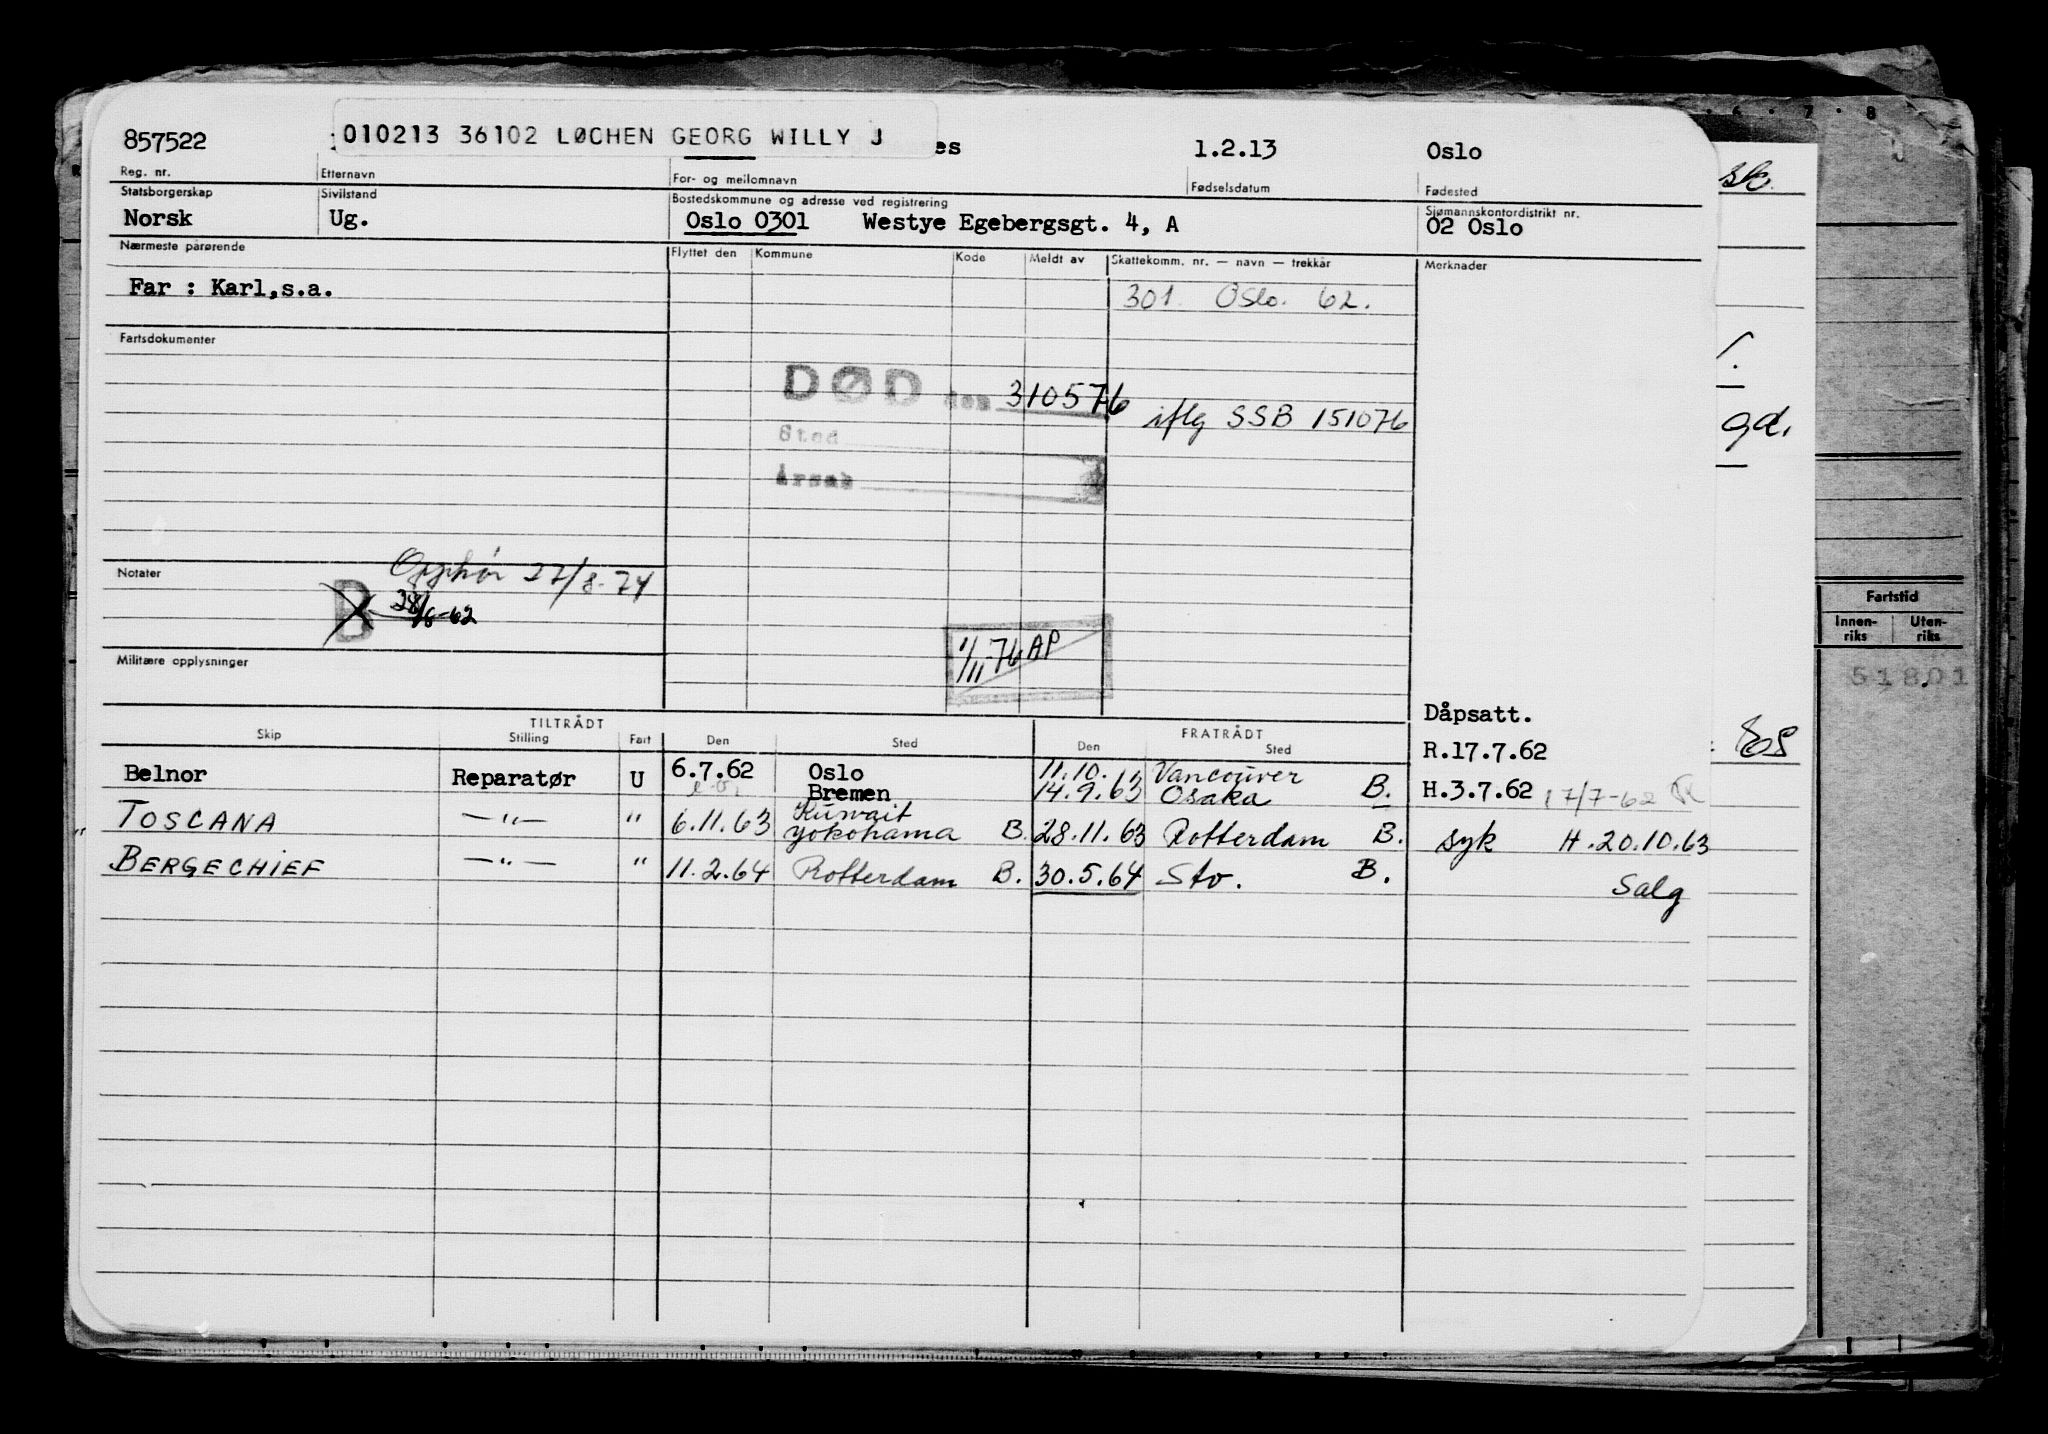 857522 010213 36102 LØCHEN GEORG WILLY J es 1.2.13 Oslo
Reg. nr. Etternavn For- og mellomnavn Fødselsdatum Fødested
Statsborgerskap Sivilstand Bostedskommune og adresse ved registrering Sjømannskontordistrikt nr.
Norsk Ug. Oslo 0301 Westye Egebergsgt. 4, A 02 Oslo
Nærmeste pårørende Flyttet den Kommune Kode Meldt av Skattekomm. nr. — navn — trekkår Merknader
Far : Karl,s.a. 301 Oslo. 62.
Fartsdokumenter
DØD den 310576 iflg SSB 151076
Sted
Årsak
Notater Opphør 27/8-74
B 28/6-62
1/11-76 AP
Militære opplysninger
Dåpsatt.
TILTRÅDT FRATRÅDT
Skip Stilling Fart Den Sted Den Sted
R.17.7.62
Belnor Reparatør U 6.7.62 Oslo 11.10. Vancouver
Bremen 14.9.63 Osaka B. H.3.7.62 17/7-62
Kuwait
TOSCANA —"— " 6.11.63 Yokohama B. 28.11.63 Rotterdam B. syk H.20.10.63
BERGECHIEF —"— " 11.2.64 Rotterdam B. 30.5.64 Sto. B. Salg
sk.
gd.
Fartstid
Innen-riks Uten-riks
51801